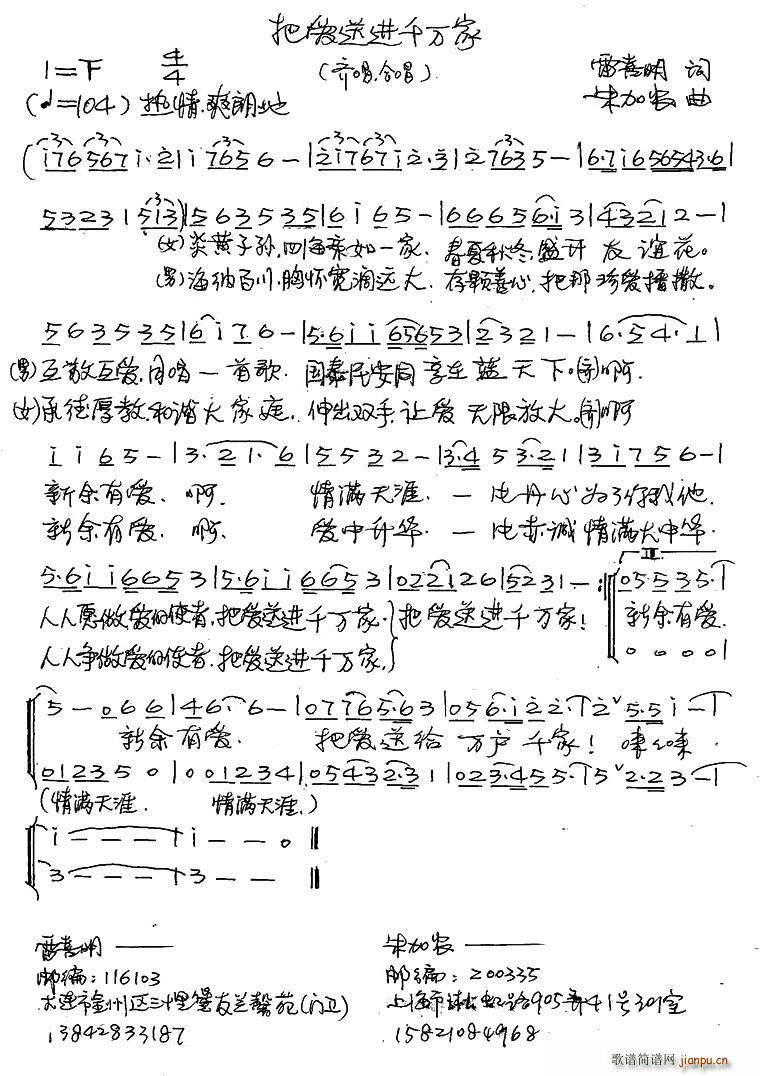 把爱送进千万家
1=F 4/4 (齐唱、合唱) 雷喜明 词
(♩=104) 热情、爽朗地 朱加农 曲
(i76 567 i·2 | i i 765 6 - | 2i7 67i 2·3 | 2 763 5 - | 6·7i6 56543·6 |
5 3 2 3 1 5i3) | 5 6 3 5 3 5 | 6 i 6 5 - | 6 6 6 5 6·i 3 | 4 3 2 1 2 - |
(女)炎黄子孙,四海亲如一家. 春夏秋冬,盛开友谊花。
(男)海纳百川,胸怀宽阔远大. 存颗善心,把那珍爱播撒。
5 6 3 5 3 5 | 6 i 7 6 - | 5·6 i i 6 5 6 5 3 | 2 3 2 1 - | 6·5 4·1 |
(男)互敬互爱,同唱一首歌. 国泰民安同享在蓝天下。(齐)啊.
(女)承德厚教,和谐大家庭. 伸出双手,让爱无限放大。(齐)啊
i i 6 5 - | 3·2 1·6 | 5 5 3 2 - | 3·4 5 3·2 1 | 3 i 7 5 6 - |
新余有爱. 啊. 情满天涯. 一片丹心为了你我他.
新余有爱. 啊. 爱中升华. 一片赤诚情满大中华.
5·6 i i 6 6 5 3 | 5·6 i i 6 6 5 3 | 0 2 2 1 2 6 | 5 2 3 1 - :‖ II 0 5 5 3 5·1 |
人人愿做爱的使者,把爱送进千万家. 把爱送进千万家! 新余有爱.
人人争做爱的使者,把爱送进千万家, 0 0 0 0 |
5 - 0 6 6 | 4 6· 6 - | 0 7 7 6 5·6 3 | 0 5 6·i 2 2· | 2 ˅ 5·5 i - |
新余有爱. 把爱送给万户千家! 嗦嗦.
0 1 2 3 5 0 | 0 0 1 2 3 4 | 0 5 4 3 2·3 1 | 0 2 3·4 5 5· | 5 ˅ 2·2 3 - |
(情满天涯. 情满天涯.)
i - - - | i - - 0 ‖
3 - - - | 3 - - - ‖
雷喜明 —— 朱加农 ——
邮编:116103 邮编:200335
大连市金州区三十里堡友兰馨苑(门卫) 上海市 虹路905弄41号301室
13842833187 15821084968
歌谱简谱网 jianpu.cn